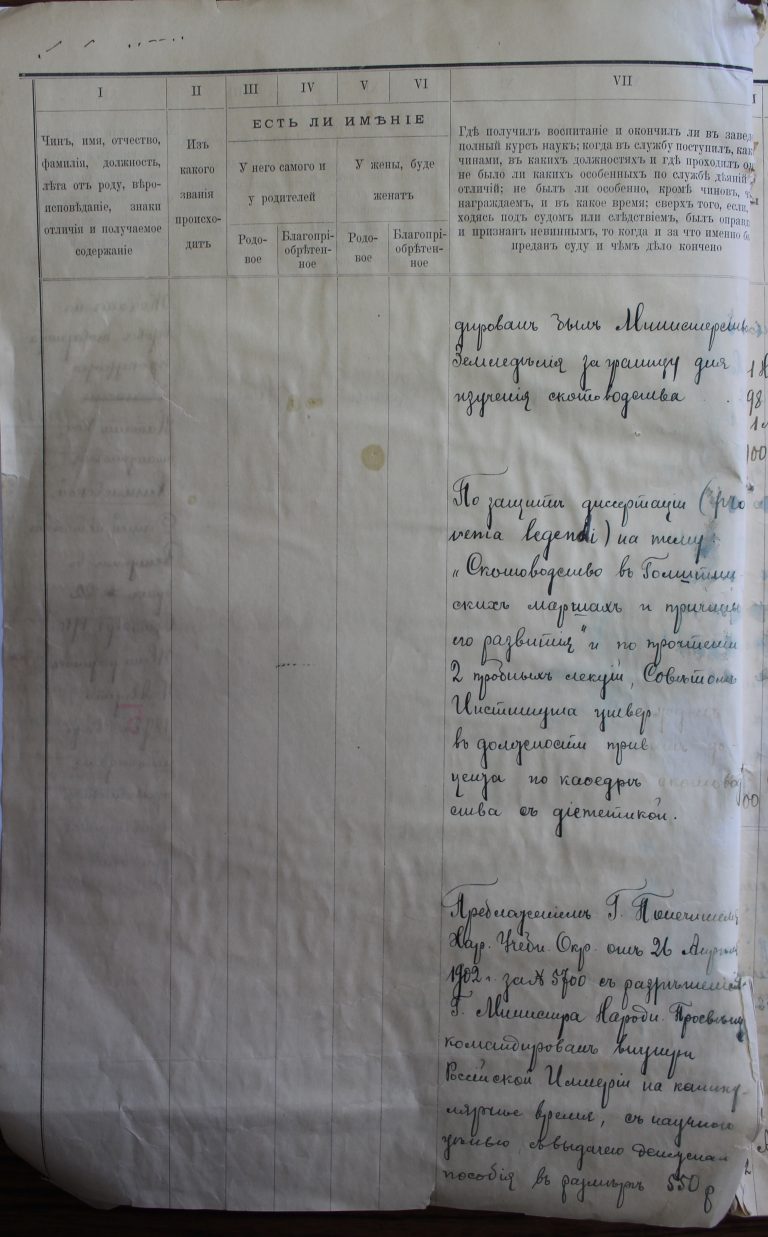 I
II
III
IV
V
VI
VII
Чинъ, имя, отчество,
фамилія, должность,
лѣта отъ роду, вѣро-
исповѣданіе, знаки
отличія и получаемое
содержаніе
Изъ
какого
званія
происхо-
дитъ
ЕСТЬ ЛИ ИМѢНІЕ
У него самого и
у родителей
У жены, буде
женатъ
Родо-
вое
Благопрі-
обрѣтен-
ное
Родо-
вое
Благопрі-
обрѣтен-
ное
Гдѣ получилъ воспитаніе и окончилъ ли въ завед
полный курсъ наукъ; когда въ службу поступилъ, как
чинами, въ какихъ должностяхъ и гдѣ проходилъ он
не было ли какихъ особенныхъ по службѣ дѣяній
отличій; не былъ ли особенно, кромѣ чиновъ, ч
награждаемъ, и въ какое время; сверхъ того, если,
ходясь подъ судомъ или слѣдствіемъ, былъ оправд
и признанъ невиннымъ, то когда и за что именно б
преданъ суду и чѣмъ дѣло кончено
дированъ былъ Министерств
Земледѣлія заграницу для
изученія скотоводства
По защитѣ диссертаціи (pro
venia legendi) на тему:
„Скотоводство въ Голштин
скихъ маршахъ и причины
его развитія" и по прочтеніи
2 пробныхъ лекцій, Совѣтомъ
Института утвер
въ должности прив
цента по каѳедрѣ скотовод
ства съ діэтетикой.
Предложеніемъ Г. Попечителя
Хар. Учебн. Окр. отъ 26 Апрѣля
1902 г. за № 5700 съ разрѣшенія
Г. Министра Народн. Просвѣщ
командированъ внутри
Россійской Имперіи на канику-
лярное время, съ научною
цѣлью, съ выдачею
пособія въ размѣрѣ 550 р